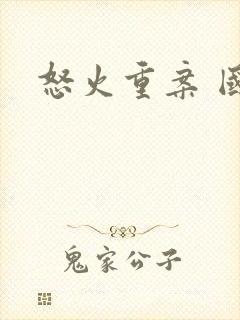 怒火重案 國
鬼家公子